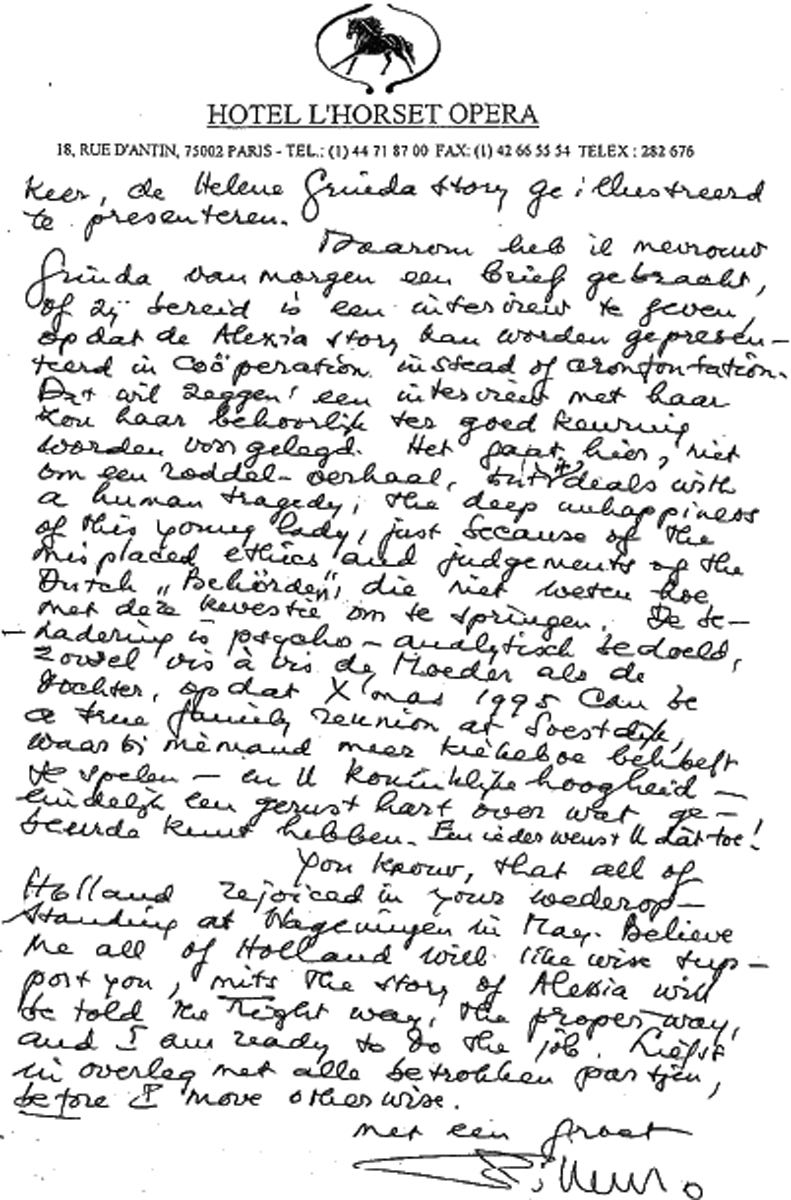 HOTEL L'HORSET OPERA
18, RUE D'ANTIN, 75002 PARIS - TEL.: (1) 44 71 87 00 FAX: (1) 42 66 55 54 TELEX : 282 676
keer, de Helene Grinda story geillustreerd
te presenteren.
Daarom heb ik mevrouw
Grinda van morgen een brief gebracht,
of zij bereid is een interview te geven,
opdat de Alexia story kan worden gepresen-
teerd in coöperation instead of
Dat wil zeggen: een interview met haar
zou haar behoorlijk ter goedkeuring
worden voorgelegd. Het gaat hier, niet
om een roddel-verhaal, but it deals with
a human tragedy, the deep unhappiness
of this young lady, just because of the
misplaced ethics and judgements of the
Dutch „Behörden", die niet weten hoe
met deze kwestie om te springen. De be-
nadering is psycho-analytisch bedoeld,
zowel vis à vis de Moeder als de
dochter, opdat X'mas 1995 can be
a true family reunion at Soestdijk,
waarbij niemand meer kiekeboe behoeft
te spelen - en U koninklijke hoogheid -
eindelijk een gerust hart over wat ge-
beurde kunt hebben. Een ieder wenst U dat toe!
You know, that all of
Holland rejoiced in your wederop-
standing at Wageningen in May. Believe
me all of Holland will likewise sup-
port you, mits the story of Alexia will
be told the right way, the proper way,
and I am ready to do the job. Liefst
in overleg met alle betrokken partijen,
before I move otherwise.
met een groet